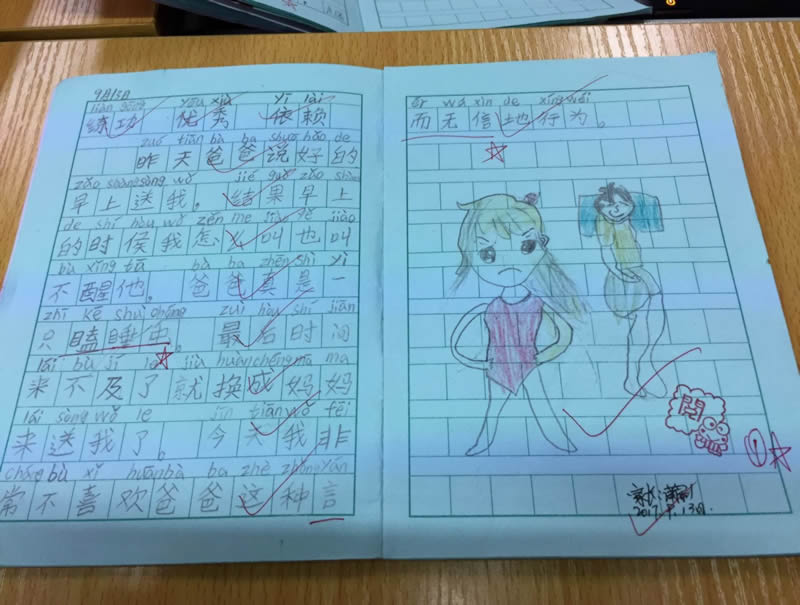 9月15日
liàn gōng yōu xiù yī lài
练功 优秀 依赖
zuó tiān bà ba shuō hǎo de
昨天爸爸说好的
zǎo shàng sòng wǒ jié guǒ zǎo shàng
早上送我。结果早上
de shí hòu wǒ zěn me jiào yě jiào
的时侯我怎么叫也叫
bù xǐng tā bà ba zhēn shì yì
不醒他。爸爸真是一
zhī kē shuì chóng zuì hòu shí jiān
只瞌睡虫。最后时间
lái bù jí le jiù huàn chéng mā ma
来不及了就换成妈妈
lái sòng wǒ le jīn tiān wǒ fēi
来送我了。今天我非
cháng bù xǐ huān bà ba zhè zhǒng yán
常不喜欢爸爸这种言
ér wú xìn de xíng wéi
而无信地行为。
阅